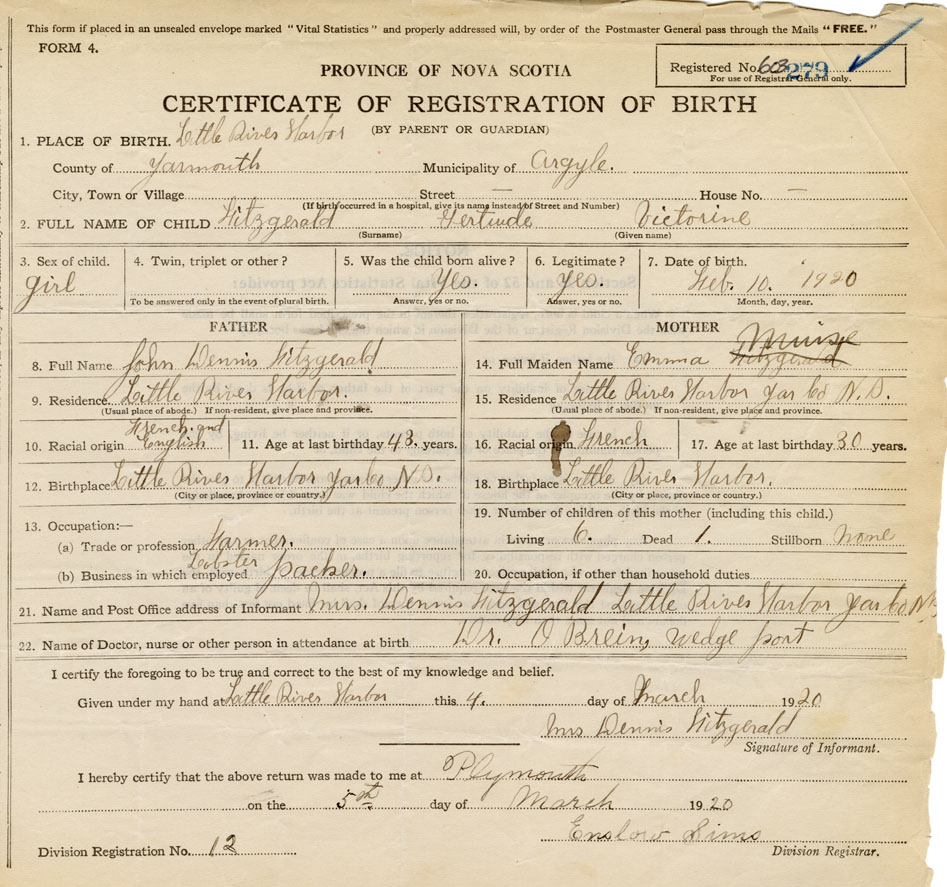 This form if placed in an unsealed envelope marked "Vital Statistics" and properly addressed will, by order of the Postmaster General pass through the Mails "FREE."
FORM 4.
Registered No. 603 279
For use of Registrar General only.
PROVINCE OF NOVA SCOTIA
CERTIFICATE OF REGISTRATION OF BIRTH
(BY PARENT OR GUARDIAN)
1. PLACE OF BIRTH. Little River Harbor
County of Yarmouth Municipality of Argyle.
City, Town or Village Street — House No. —
(If birth occurred in a hospital, give its name instead of Street and Number)
2. FULL NAME OF CHILD Fitzgerald Gertrude Victorine
(Surname) (Given name)
3. Sex of child. 4. Twin, triplet or other? 5. Was the child born alive? 6. Legitimate? 7. Date of birth.
girl Yes. Yes. Feb. 10. 1920
To be answered only in the event of plural birth. Answer, yes or no. Answer, yes or no. Month, day, year.
FATHER MOTHER
8. Full Name John Dennis Fitzgerald 14. Full Maiden Name Emma Fitzgerald Muise
9. Residence Little River Harbor. 15. Residence Little River Harbor Yar Co N.S.
(Usual place of abode.) If non-resident, give place and province. (Usual place of abode.) If non-resident, give place and province.
10. Racial origin French and English 11. Age at last birthday 43. years. 16. Racial origin French 17. Age at last birthday 30 years.
12. Birthplace Little River Harbor Yar Co N.S. 18. Birthplace Little River Harbor.
(City or place, province or country.) (City or place, province or country.)
13. Occupation:— 19. Number of children of this mother (including this child.)
(a) Trade or profession Farmer. Living 6. Dead 1. Stillborn None
(b) Business in which employed Lobster packer. 20. Occupation, if other than household duties
21. Name and Post Office address of Informant Mrs. Dennis Fitzgerald Little River Harbor Yar Co N.S.
22. Name of Doctor, nurse or other person in attendance at birth Dr. O Brein, Wedge port
I certify the foregoing to be true and correct to the best of my knowledge and belief.
Given under my hand at Little River Harbor this 4. day of March 1920
Mrs Dennis Fitzgerald
Signature of Informant.
I hereby certify that the above return was made to me at Plymouth
on the 5th day of March 1920
Enslow Sims
Division Registration No. 12 Division Registrar.